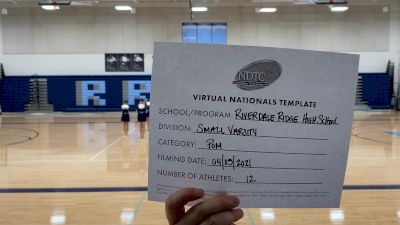 NDTC
VIRTUAL NATIONALS TEMPLATE
SCHOOL/PROGRAM: RIVERDALE RIDGE HIGH SCHOOL
DIVISION: SMALL VARSITY
CATEGORY: POM
FILMING DATE: 04/09/2021
NUMBER OF ATHLETES: 12
R R